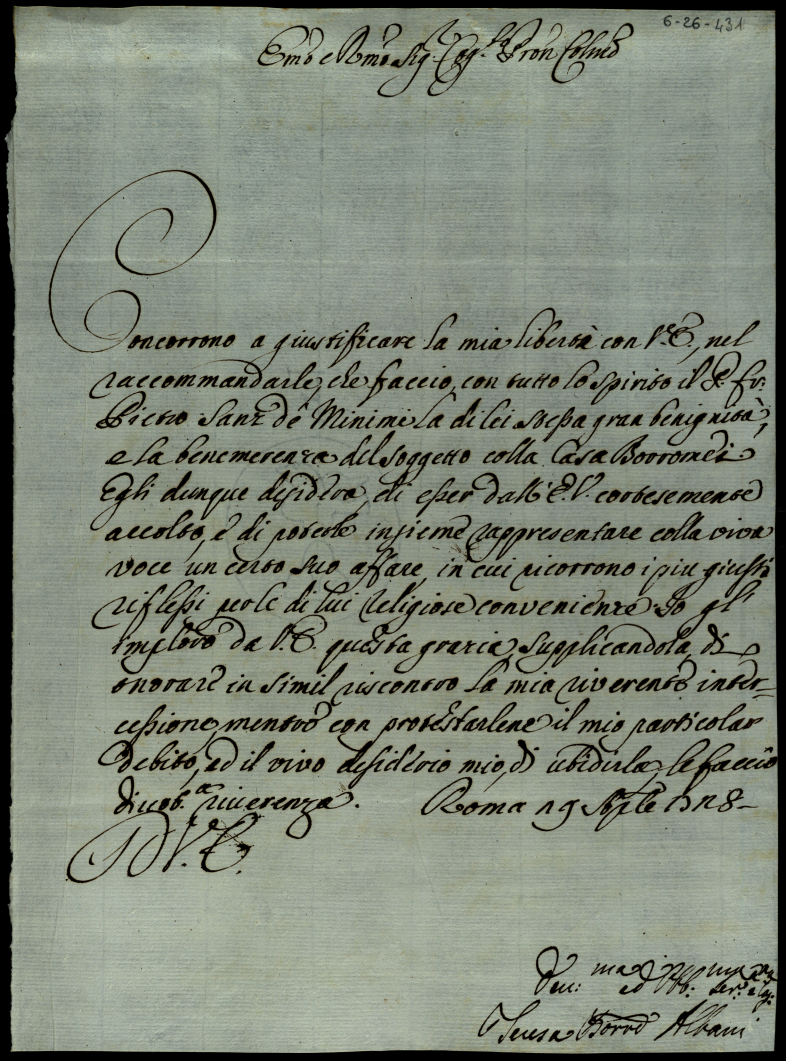 6-26-431
Emo e Rmo Sig. Cog. Pron Colmo
Concorrono a giustificare la mia libertà con V. E., nel
raccommandarle, che faccio, con tutto lo spirito il P. fr:
Pietro Sanz de Minimi la di lei stessa gran benignità,
e la benemerenza del soggetto colla Casa Borromei
Egli dunque desidera, di esser dall' E. V. cortesemente
accolto, e di poterle insieme rappresentare colla viva
voce un certo suo affare, in cui ricorrono i piu giusti
riflessi per le di lui religiose convenienze. Io gl'
imploro da V. E. questa grazia, supplicandola, di
onorare in simil riscontro la mia riverente inter-
cessione, mentre con protestarlene il mio particolar
debito, ed il vivo desiderio mio, di ubidirla, le faccio
riverenza. Roma 19
D V. E.
ma
ed
Teresa Borro Albani